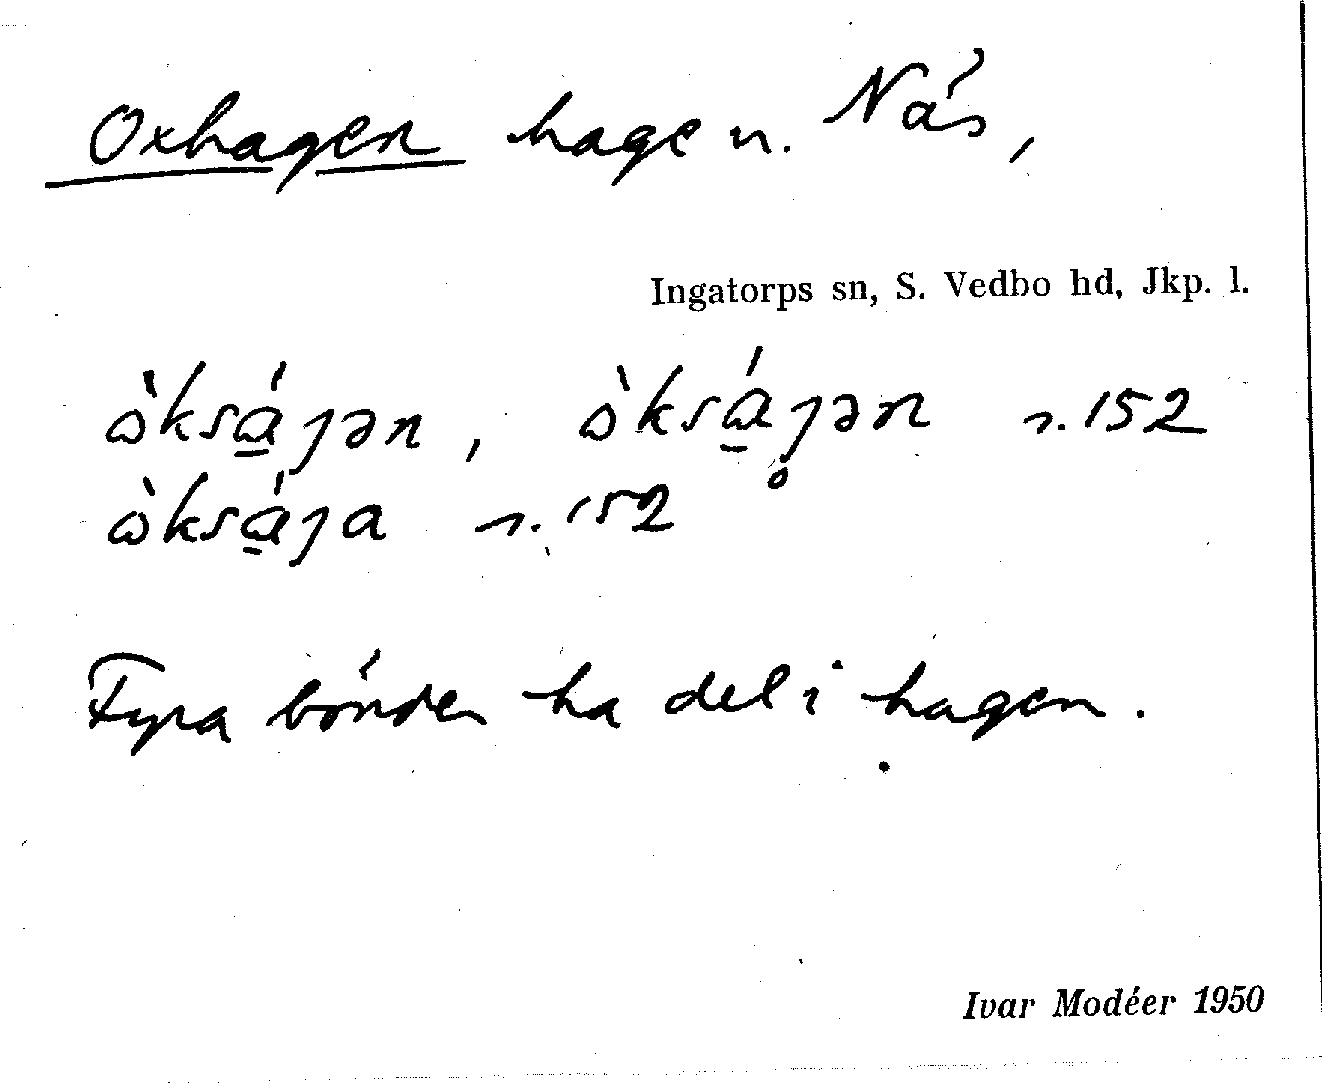 Oxhagen hage n. Näs,
Ingatorps sn, S. Vedbo hd, Jkp. l.
ὼksά̱ȷən, ὼksά̱ȷ̥ən s. 152
ὼksά̱ȷa s. 152
Fyra bönder ha del i hagen.
Ivar Modéer 1950